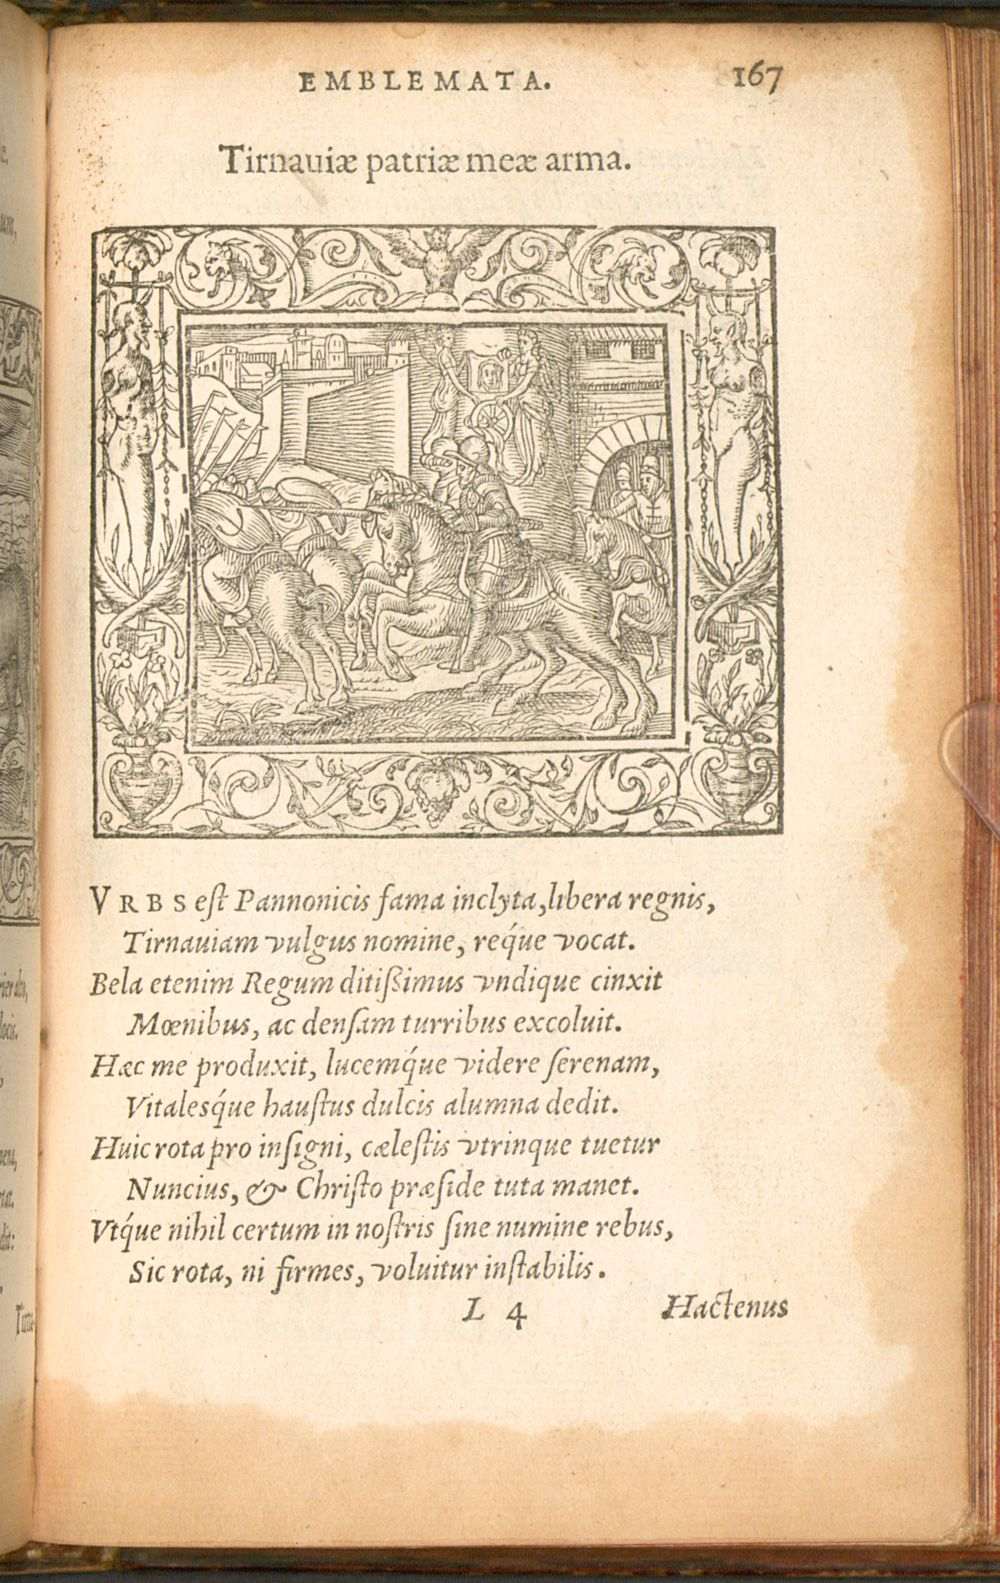 EMBLEMATA. 167
Tirnauiæ patriæ meæ arma.
VRBS eſt Pannonicis fama inclyta, libera regnis,
Tirnauiam vulgus nomine, req́ue vocat.
Bela etenim Regum ditiſsimus vndique cinxit
Mœnibus, ac denſam turribus excoluit.
Hæc me produxit, lucemq́ue videre ſerenam,
Vitalesq́ue hauſtus dulcis alumna dedit.
Huic rota pro inſigni, cæleſtis vtrinque tuetur
Nuncius, & Chriſto præſide tuta manet.
Vtq́ue nihil certum in noſtris ſine numine rebus,
Sic rota, ni firmes, voluitur inſtabilis.
L 4 Hactenus